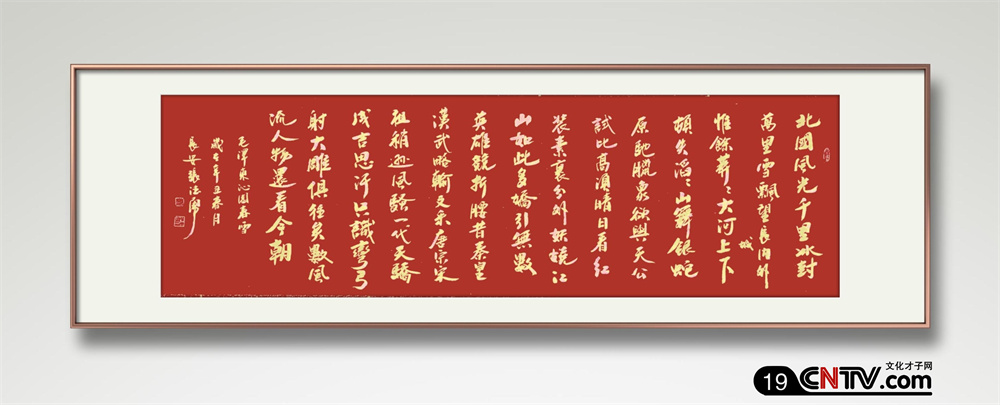 北國風光千里冰封
萬里雪飄望長內外
城
惟餘莽々大河上下
頓失滔々山舞銀蛇
原馳臘象欲與天公
試比高須晴日看紅
裝素裹分外妖嬈江
山如此多嬌引無數
英雄競折腰昔秦皇
漢武略輸文采唐宗宋
祖稍遜風騷一代天驕
成吉思汗只識彎弓
射大雕俱往矣數風
流人物還看今朝
毛澤東沁園春雪
歲在辛丑春月
長安張
文化才子网
19 CNTV.com